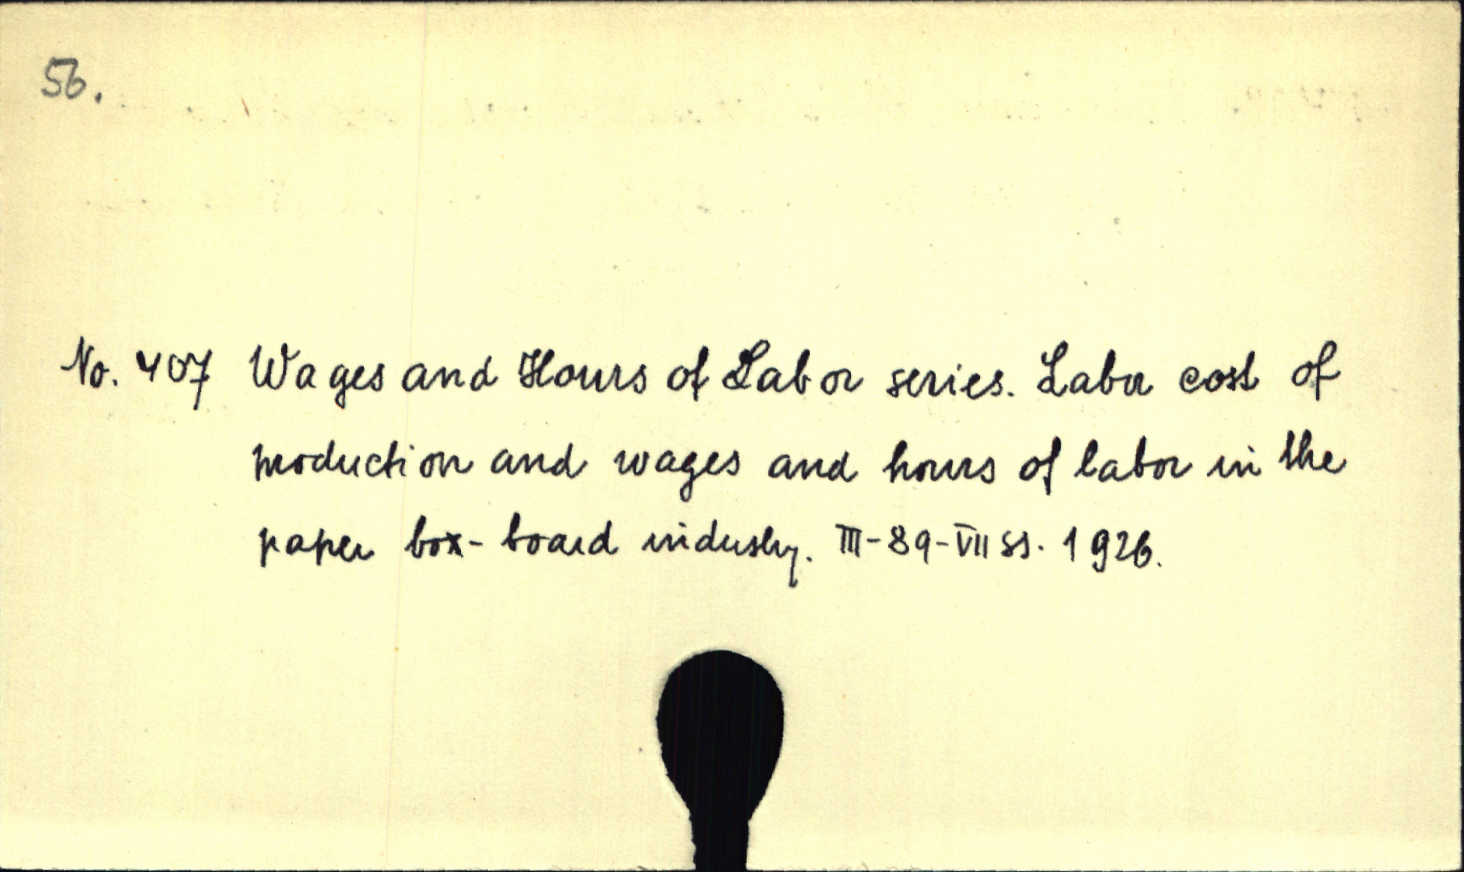 56.
No. 407 Wages and Hours of Labor series. Labor cost of
production and wages and hours of labor in the
paper box-board industry. III-89-VII ss. 1926.